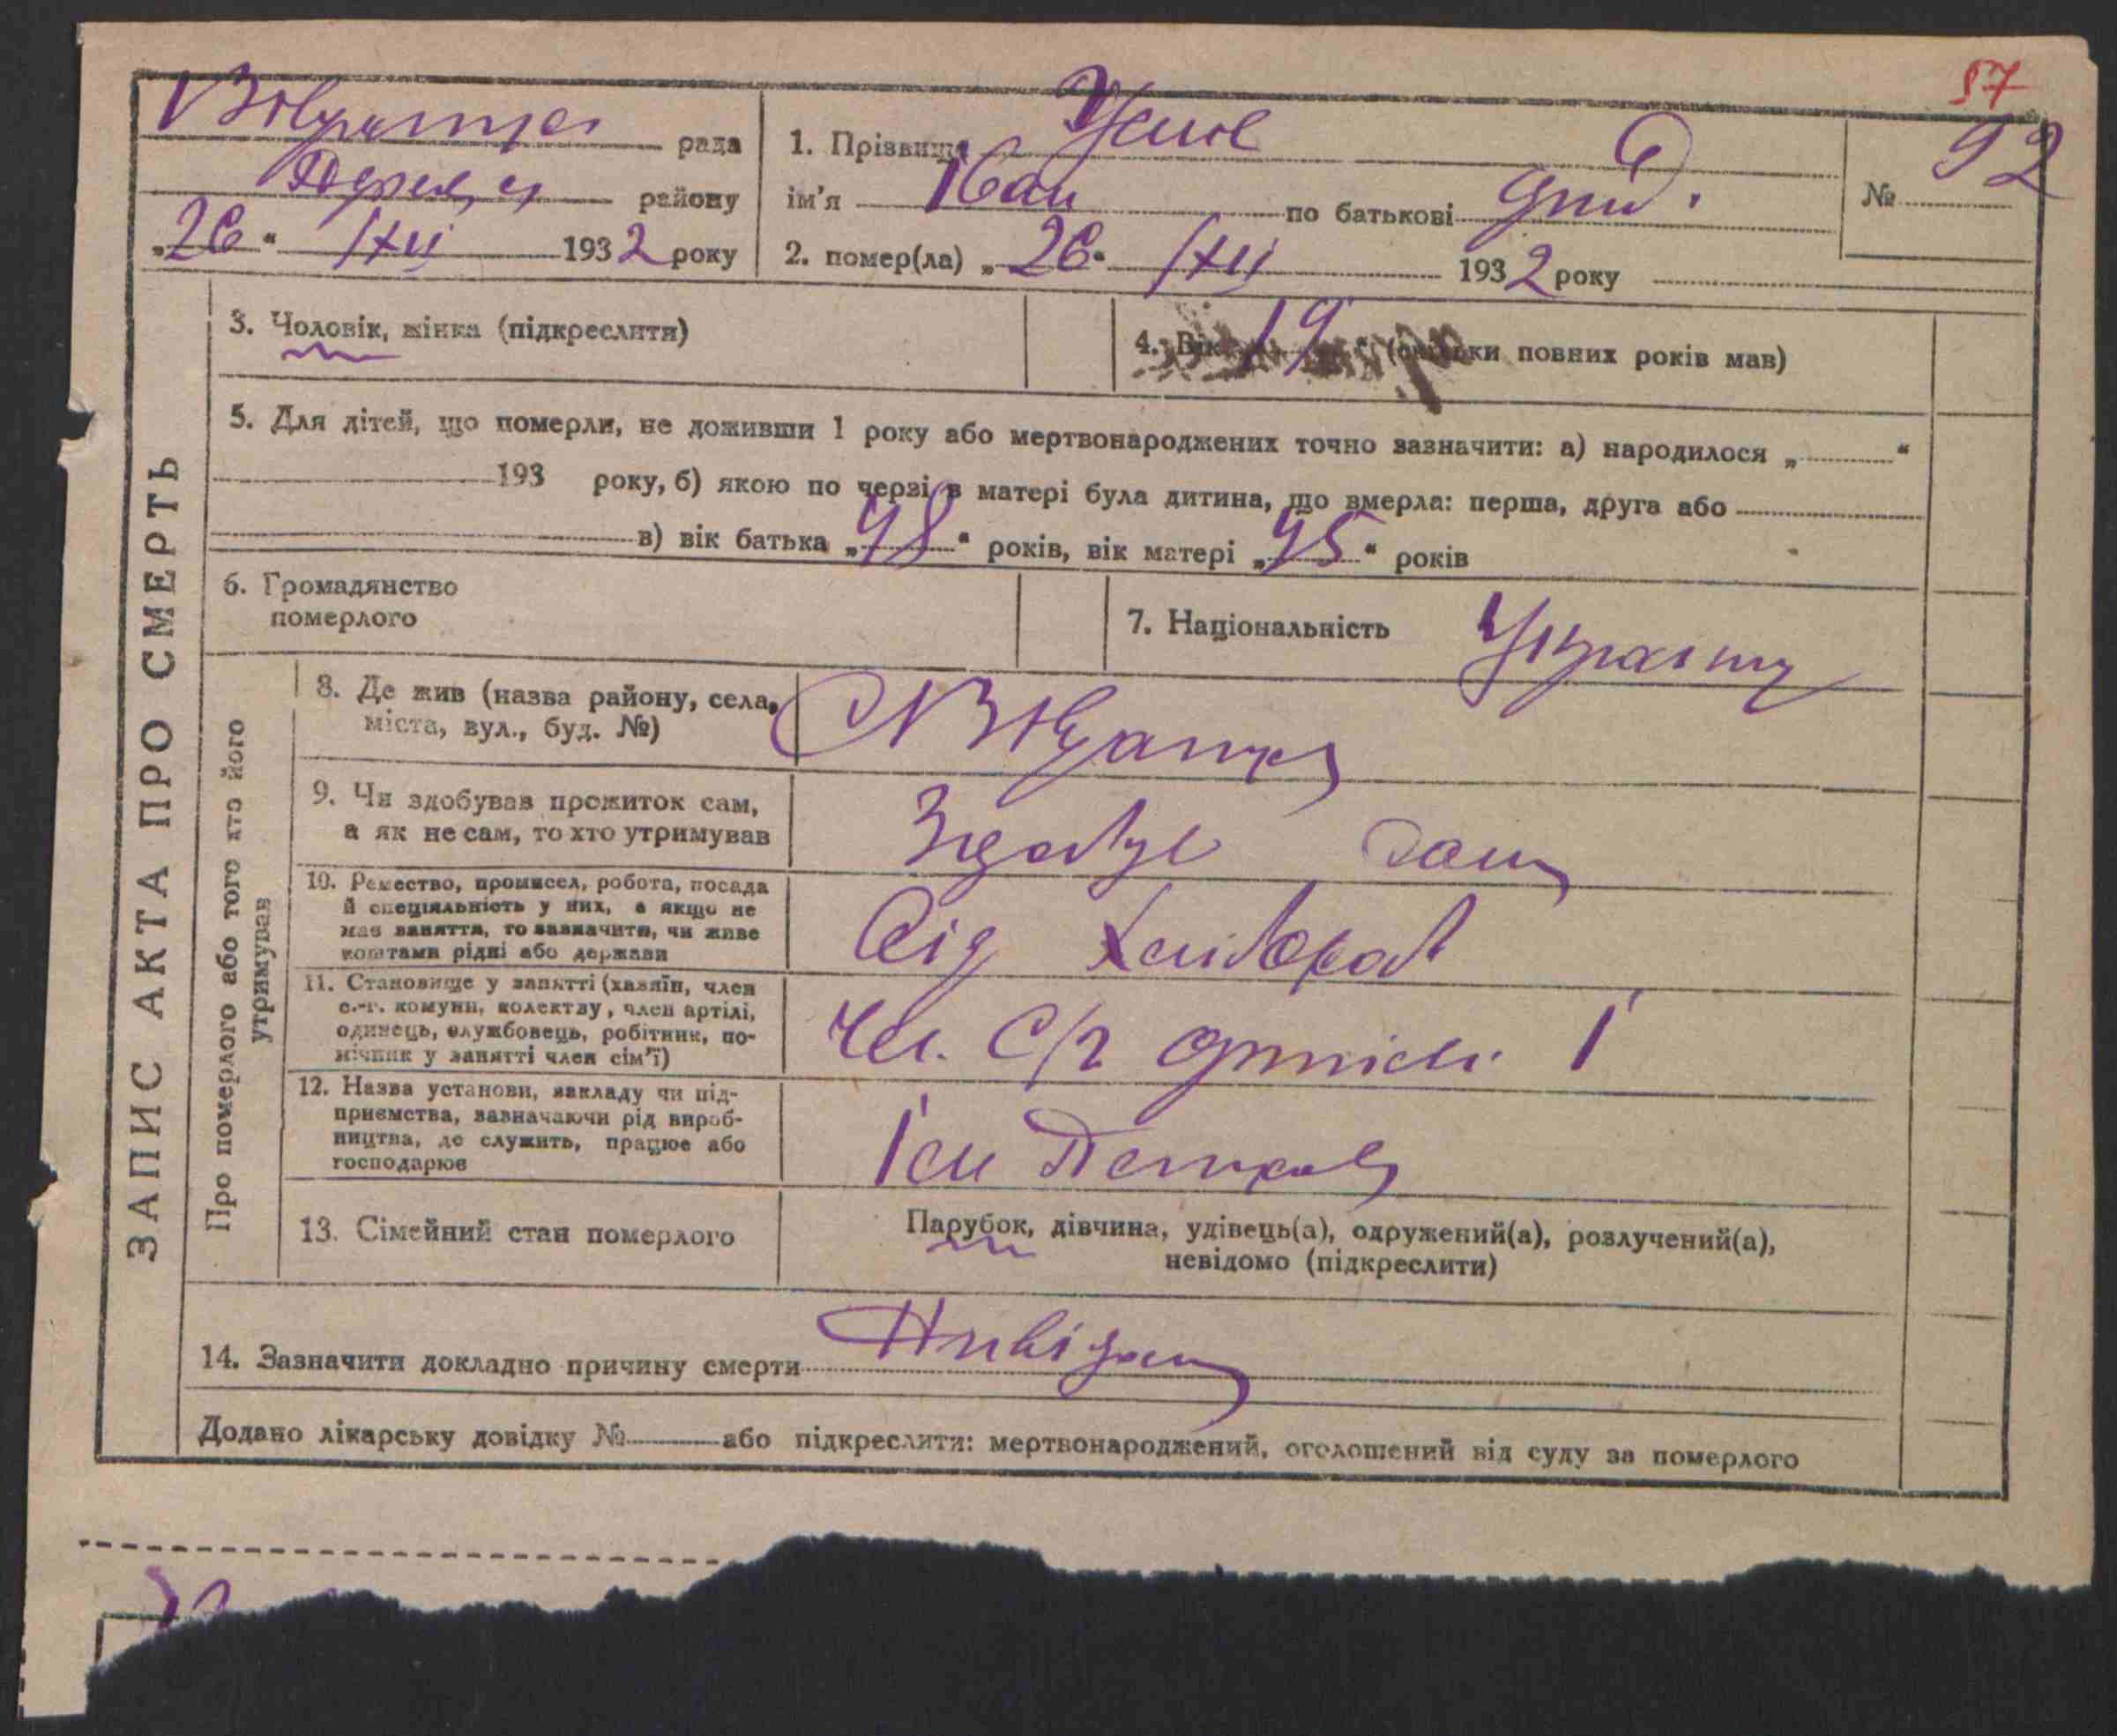 57
рада
району
„26“ /XII 1932 року
1. Прізвище
ім'я Іван по батькові
№ 92
2. помер(ла) „26“ /XII 1932 року
ЗАПИС АКТА ПРО СМЕРТЬ
3. Чоловік, жінка (підкреслити)
4. Вік 19 (скільки повних років мав)
5. Для дітей, що померли, не доживши 1 року або мертвонароджених точно зазначити: а) народилося „ “
193 року, б) якою по черзі в матері була дитина, що вмерла: перша, друга або
в) вік батька „48“ років, вік матері „45“ років
6. Громадянство
померлого
7. Національність
Про померлого або того хто його
утримував
8. Де жив (назва району, села,
міста, вул., буд. №)
9. Чи здобував прожиток сам,
а як не сам, то хто утримував
сам
10. Ремество, промисел, робота, посада
й спеціяльність у них, а якщо не
мав заняття, то зазначити, чи живе
коштами рідні або держави
Сід Хлібороб
11. Становище у занятті (хазяїн, член
с.-г. комуни, колектву, член артілі,
одинець, службовець, робітник, по-
мічник у занятті член сім'ї)
Чл. С/г артілі І
12. Назва установи, закладу чи під-
приємства, зазначаючи рід вироб-
ництва, де служить, працює або
господарює
13. Сімейний стан померлого
Парубок, дівчина, удівець(а), одружений(а), розлучений(а),
невідомо (підкреслити)
14. Зазначити докладно причину смерти
Додано лікарську довідку № або підкреслити: мертвонароджений, оголошений від суду за померлого